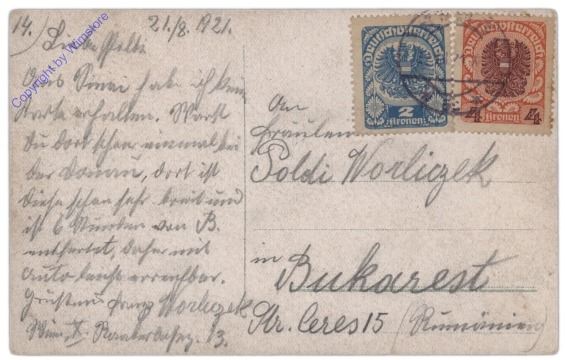 14.) 21./8. 1921.
Liebe Poldi
Aus Sinai hab ich kein
Karte erhalten. Warst
Du dort schon einmal bei
der Donau, dort ist
diese schon sehr breit und
ist 6 Stunden von B.
entfernt, daher mit
Auto leicht erreichbar.
Grüsst Franz Worliczek
Wien, X.
13.
An
Fräulein
Poldi Worliczek
in
Bukarest
Str. Ceres 15 (Rumänien)
Deutschösterreich
2
Kronen
Deutschösterreich
4 4
Kronen
Copyright by Wimstore